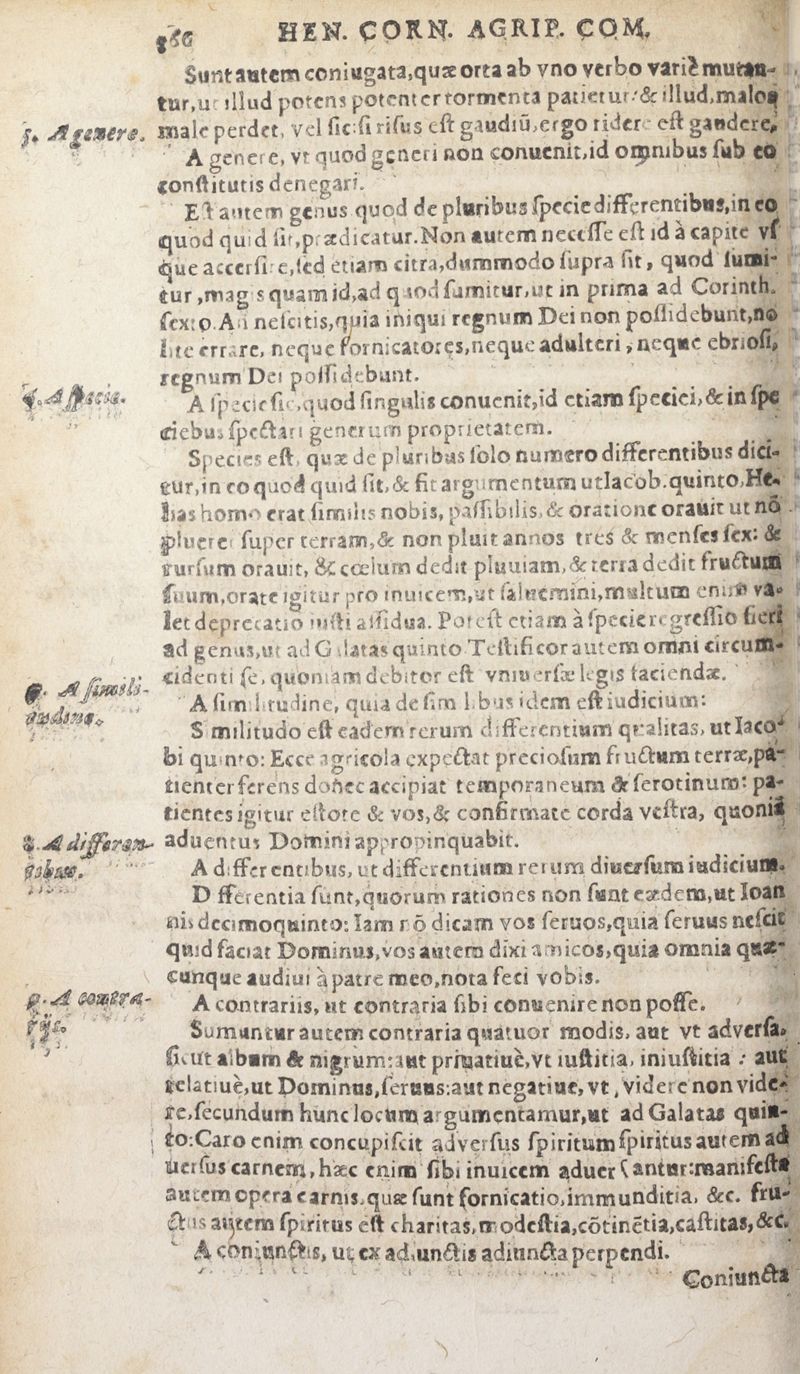 186 HEN. CORN. AGRIP. COM.
Sunt autem coniugata, quæ orta ab vno verbo variè mutan-
tur, ut illud potens potenter tormenta patietur: & illud, malos
5. A genere. male perdet, vel sic: si risus est gaudiū, ergo ridere est gaudere,
A genere, vt quod generi non conuenit, id omnibus sub eo
constitutis denegari.
Est autem genus quod de pluribus specie differentibus, in eo
quod quid sit, prædicatur. Non autem necesse est id à capite vs
que accersire, sed etiam citra, dummodo supra sit, quod sumi-
tur, magis quam id, ad quod sumitur, ut in prima ad Corinth.
sexto. An nescitis, quia iniqui regnum Dei non possidebunt, no
lite errare, neque fornicatores, neque adulteri, neque ebriosi,
regnum Dei possidebunt.
A specie. A specie sic, quod singulis conuenit, id etiam speciei, & in spe
ciebus spectari generum proprietatem.
Species est, quæ de pluribus solo numero differentibus dici-
tur, in eo quod quid sit, & fit argumentum ut Iacob. quinto, He-
lias homo erat similis nobis, passibilis, & oratione orauit ut nō
plueret super terram, & non pluit annos tres & menses sex: &
rursum orauit, & cœlum dedit pluuiam, & terra dedit fructum
suum, orate igitur pro inuicem, ut saluemini, multum enim va-
let deprecatio iusti assidua. Potest etiam à specie regressio fieri
ad genus, ut ad Galatas quinto Testificor autem omni circum-
cidenti se, quoniam debitor est vniuersæ legis faciendæ.
A simili-
tudine. A similitudine, quia de similibus idem est iudicium:
Similitudo est eadem rerum differentium qualitas, ut Iaco-
bi quinto: Ecce agricola expectat preciosum fructum terræ, pa-
tienter ferens donec accipiat temporaneum & serotinum: pa-
tientes igitur estote & vos, & confirmate corda vestra, quoniā
8. A differen- aduentus Domini appropinquabit.
tibus. A differentibus, ut differentium rerum diuersum iudicium.
Differentia sunt, quorum rationes non sunt eædem, ut Ioan
nis decimoquinto: Iam nō dicam vos seruos, quia seruus nescit
quid faciat Dominus, vos autem dixi amicos, quia omnia quæ-
cunque audiui à patre meo, nota feci vobis.
9. A contra-
rijs. A contrariis, ut contraria sibi conuenire non posse.
Sumuntur autem contraria quatuor modis. aut vt adversa,
sicut album & nigrum: aut priuatiuè, vt iustitia, iniustitia: aut
relatiuè, ut Dominus, seruus: aut negatiue, vt, videre non vide-
re, secundum hunc locum argumentamur, ut ad Galatas quin-
to: Caro enim concupiscit adversus spiritum spiritus autem ad
uersus carnem, hæc enim sibi inuicem aduersantur: manifesta
autem opera carnis, quæ sunt fornicatio, immunditia, &c. fru-
ctus autem spiritus est charitas, modestia, cōtinētia, castitas, &c.
A coniunctis, ut ex adiunctis adiuncta perpendi.
Coniuncta